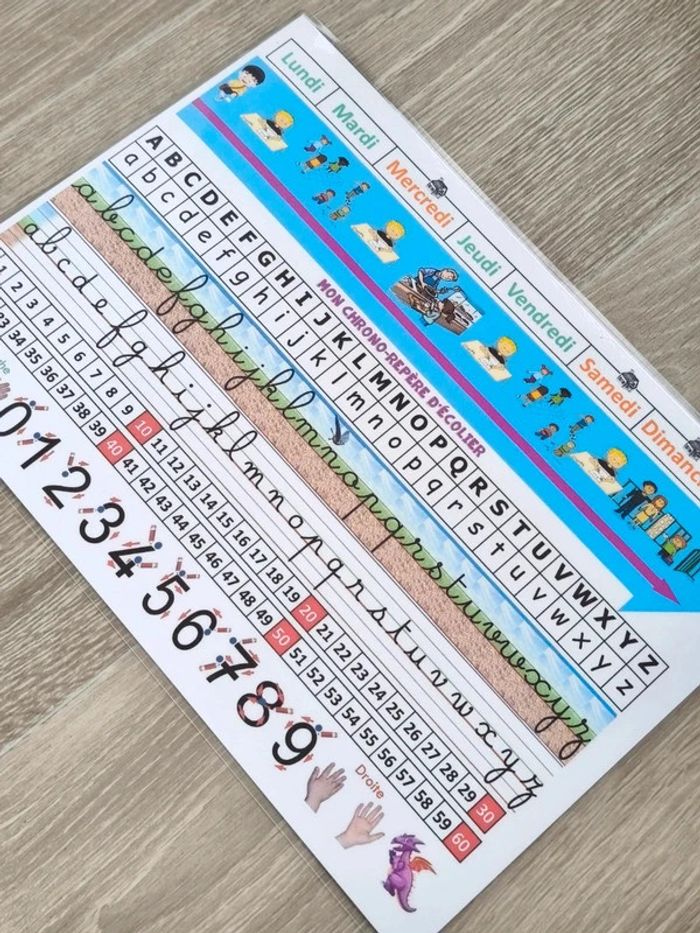 Lundi Mardi Mercredi Jeudi Vendredi Samedi Dimanc
MON CHRONO-REPÈRE D'ÉCOLIER
A B C D E F G H I J K L M N O P Q R S T U V W X Y Z
a b c d e f g h i j k l m n o p q r s t u v w x y z
a b c d e f g h i j k l m n o p q r s t u v w x y z
a b c d e f g h i j k l m n o p q r s t u v w x y z
1 2 3 4 5 6 7 8 9 10 11 12 13 14 15 16 17 18 19 20 21 22 23 24 25 26 27 28 29 30
33 34 35 36 37 38 39 40 41 42 43 44 45 46 47 48 49 50 51 52 53 54 55 56 57 58 59 60
che 0 1 2 3 4 5 6 7 8 9 Droite